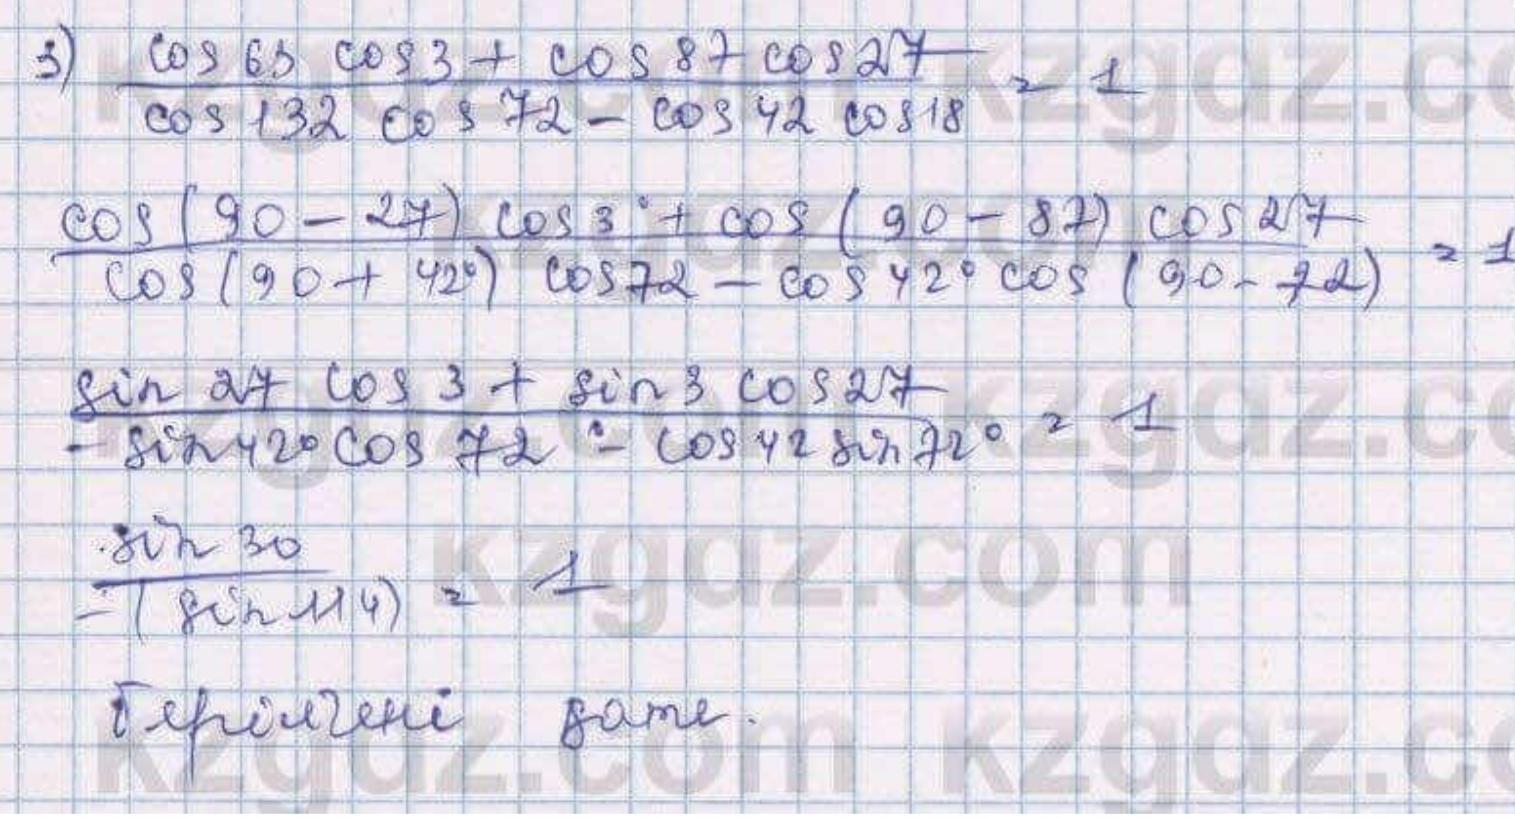 3) cos 63 cos 3 + cos 87 cos 27 / cos 132 cos 72 - cos 42 cos 18 = 1
cos (90 - 27) cos 3° + cos (90 - 87) cos 27 / cos (90 + 42°) cos 72 - cos 42° cos (90 - 72) = 1
sin 27 cos 3 + sin 3 cos 27 / - sin 42° cos 72° - cos 42 sin 72° = 1
sin 30 / - (sin 114) = 1
Берілгені қате.
kzgdz.com